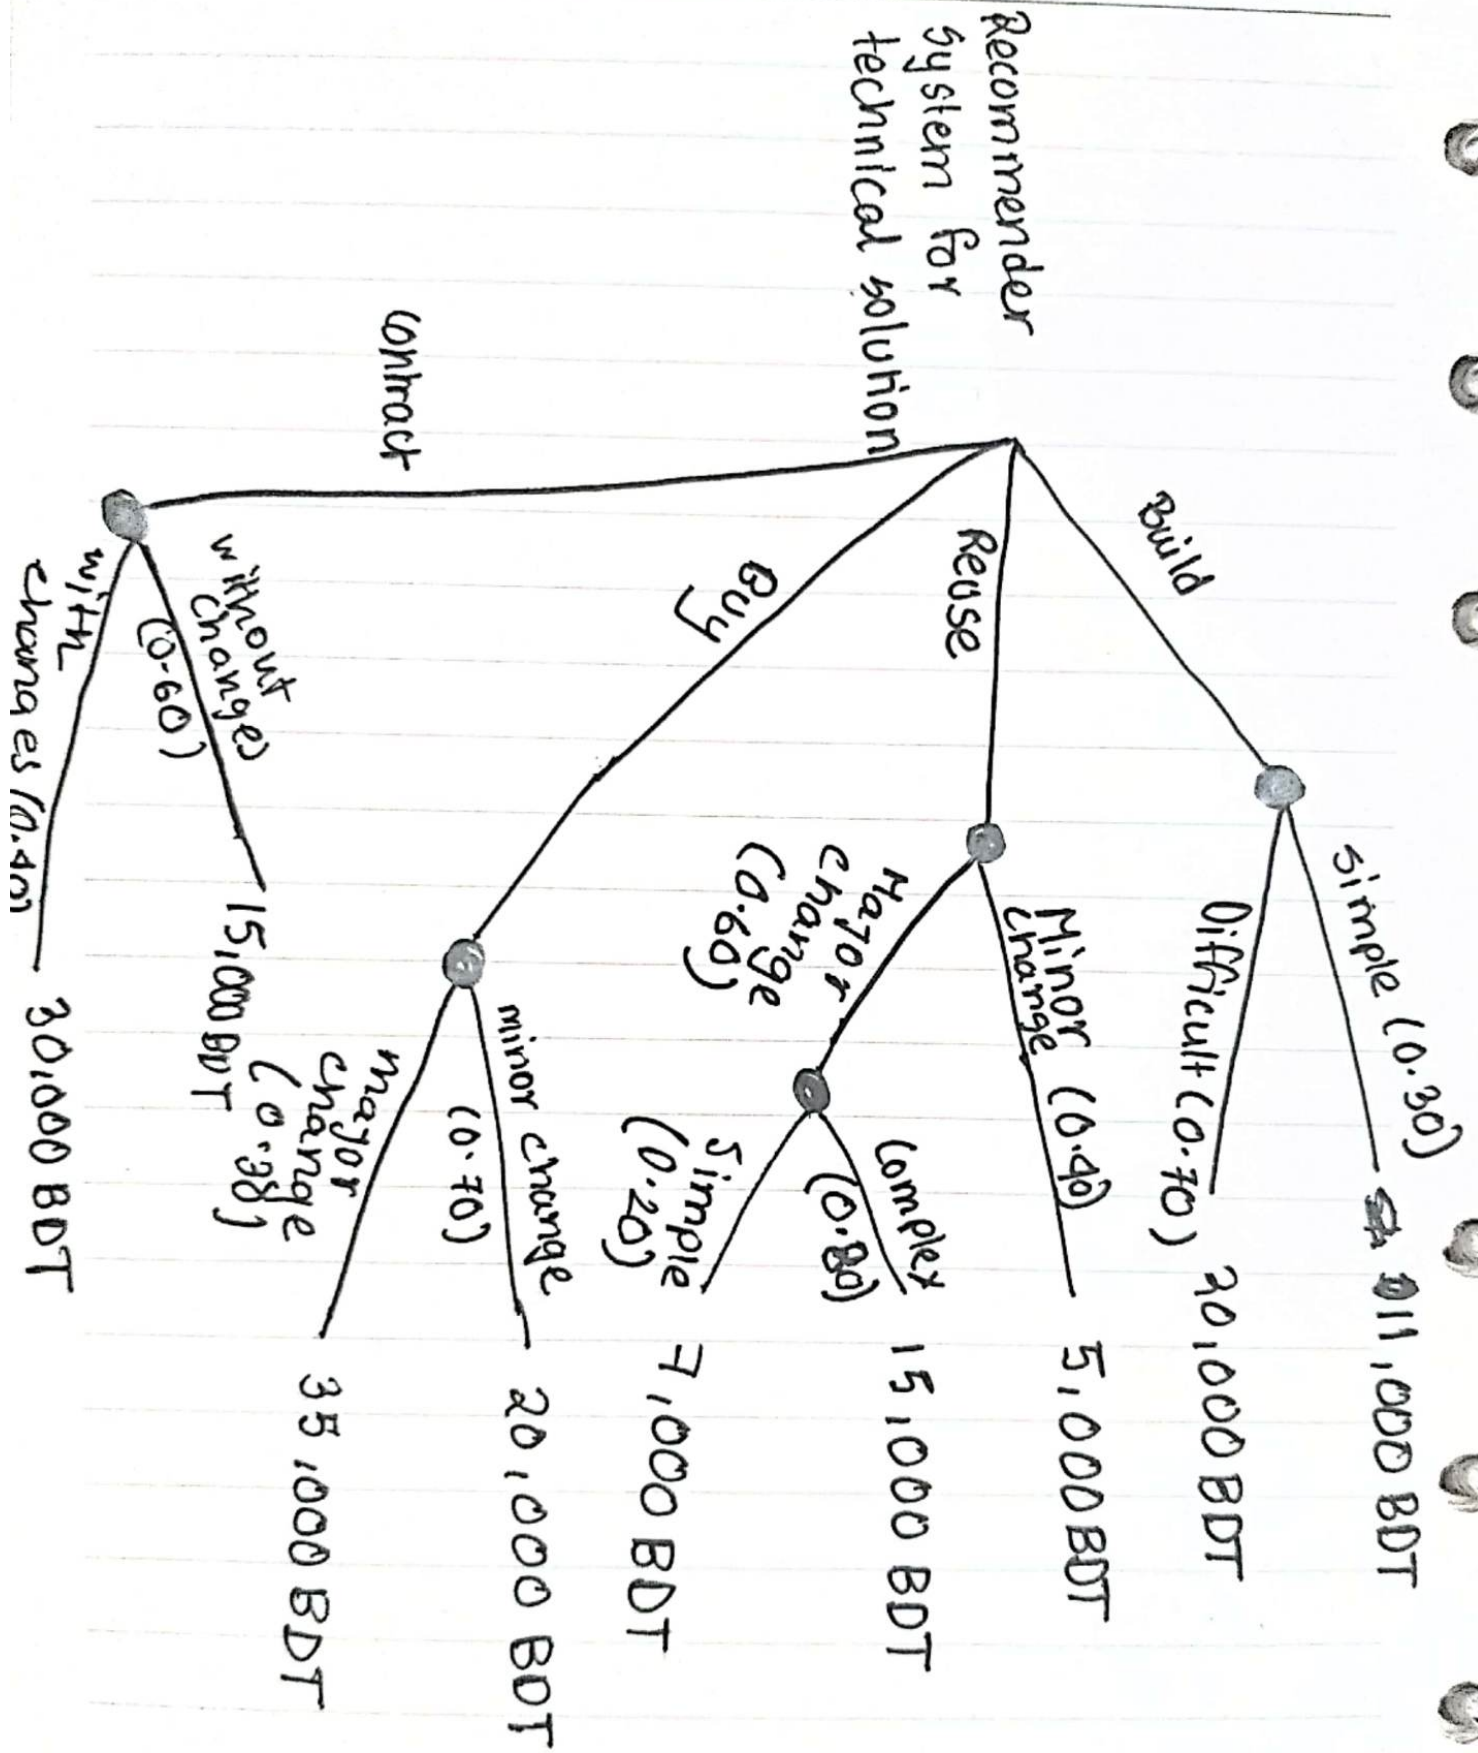 Recommender
System for
technical solution
Build
simple (0.30)
11,000 BDT
Difficult (0.70)
Reuse
Minor
change (0.40)
5,000 BDT
Major
change
(0.60)
Complex
(0.80)
15,000 BDT
Simple
(0.20)
7,000 BDT
Buy
minor change
(0.70)
20,000 BDT
major
change
35,000 BDT
contract
without
changes
(0.60)
15,000 BDT
with
changes (0.40)
30,000 BDT